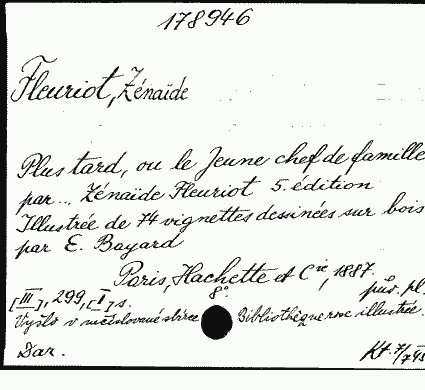 178946
Fleuriot, Zénaïde
Plus tard, ou le Jeune chef de famille
par... Zénaïde Fleuriot 5. édition
Illustrée de 74 vignettes dessinées sur bois
par E. Bayard
Paris, Hachette et Cie, 1887.
8°
pův. pl.
[III], 299, [I] s.
Vyšlo v nečíslované sbírce Bibliothèque rose illustrée.
Dar.